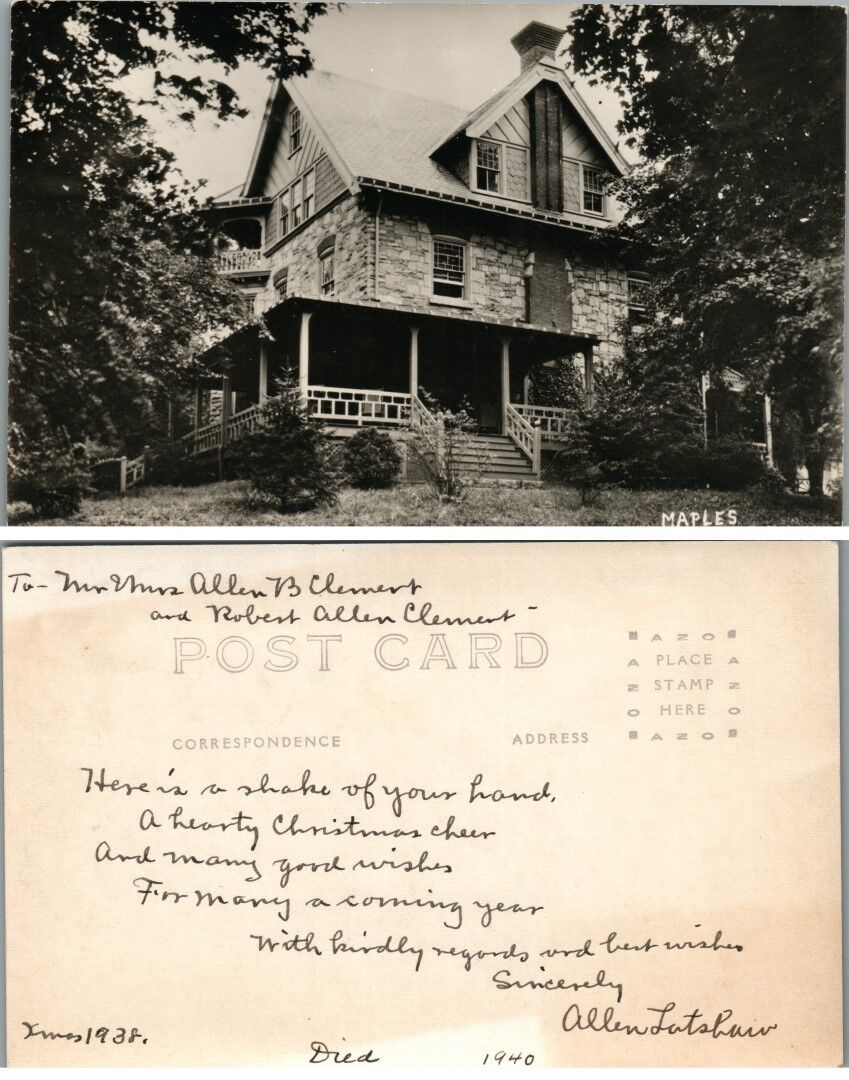 MAPLES
To- Mr & Mrs Allen B Clement
and Robert Allen Clement -
POST CARD
AZO
PLACE
STAMP
HERE
AZO
AZO
AZO
CORRESPONDENCE
ADDRESS
Here is a shake of your hand,
A hearty Christmas cheer
And many good wishes
For many a coming year
With kindly regards and best wishes
Sincerely
Allen Latshaw
Xmas 1938.
Died 1940